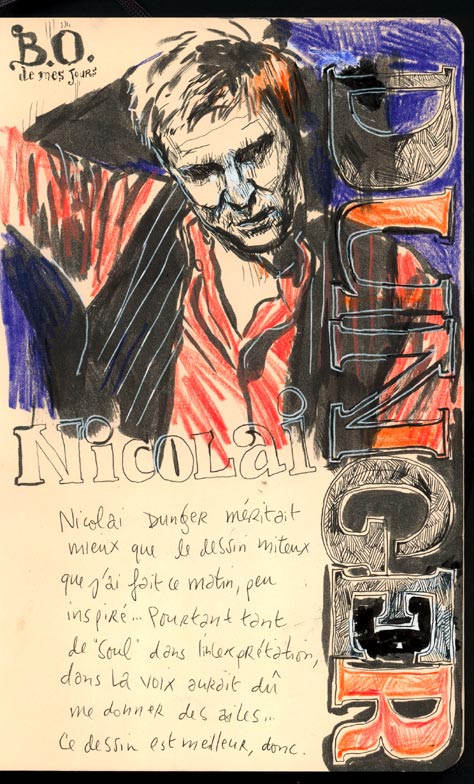 B.O.
de mes jours
DUNGER
Nicolai
Nicolai Dunger méritait
mieux que le dessin miteux
que j'ai fait ce matin, peu
inspiré... Pourtant tant
de "soul" dans l'interprétation,
dans la voix aurait dû
me donner des ailes...
Ce dessin est meilleur, donc.